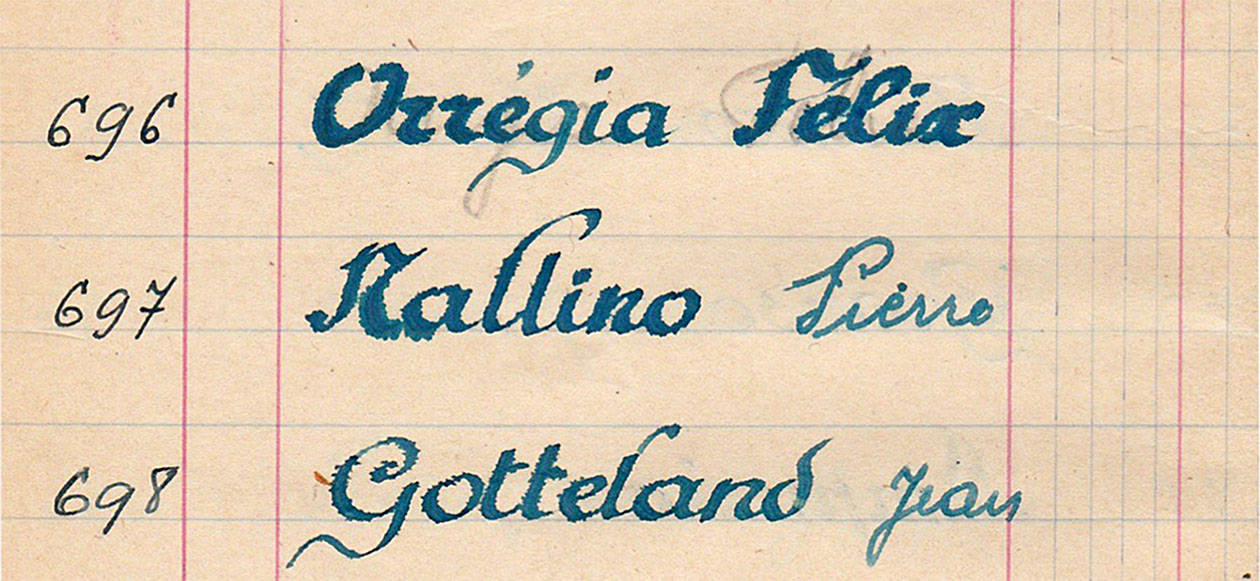 696 Orrégia Félix
697 Nallino Pierre
698 Gotteland Jean